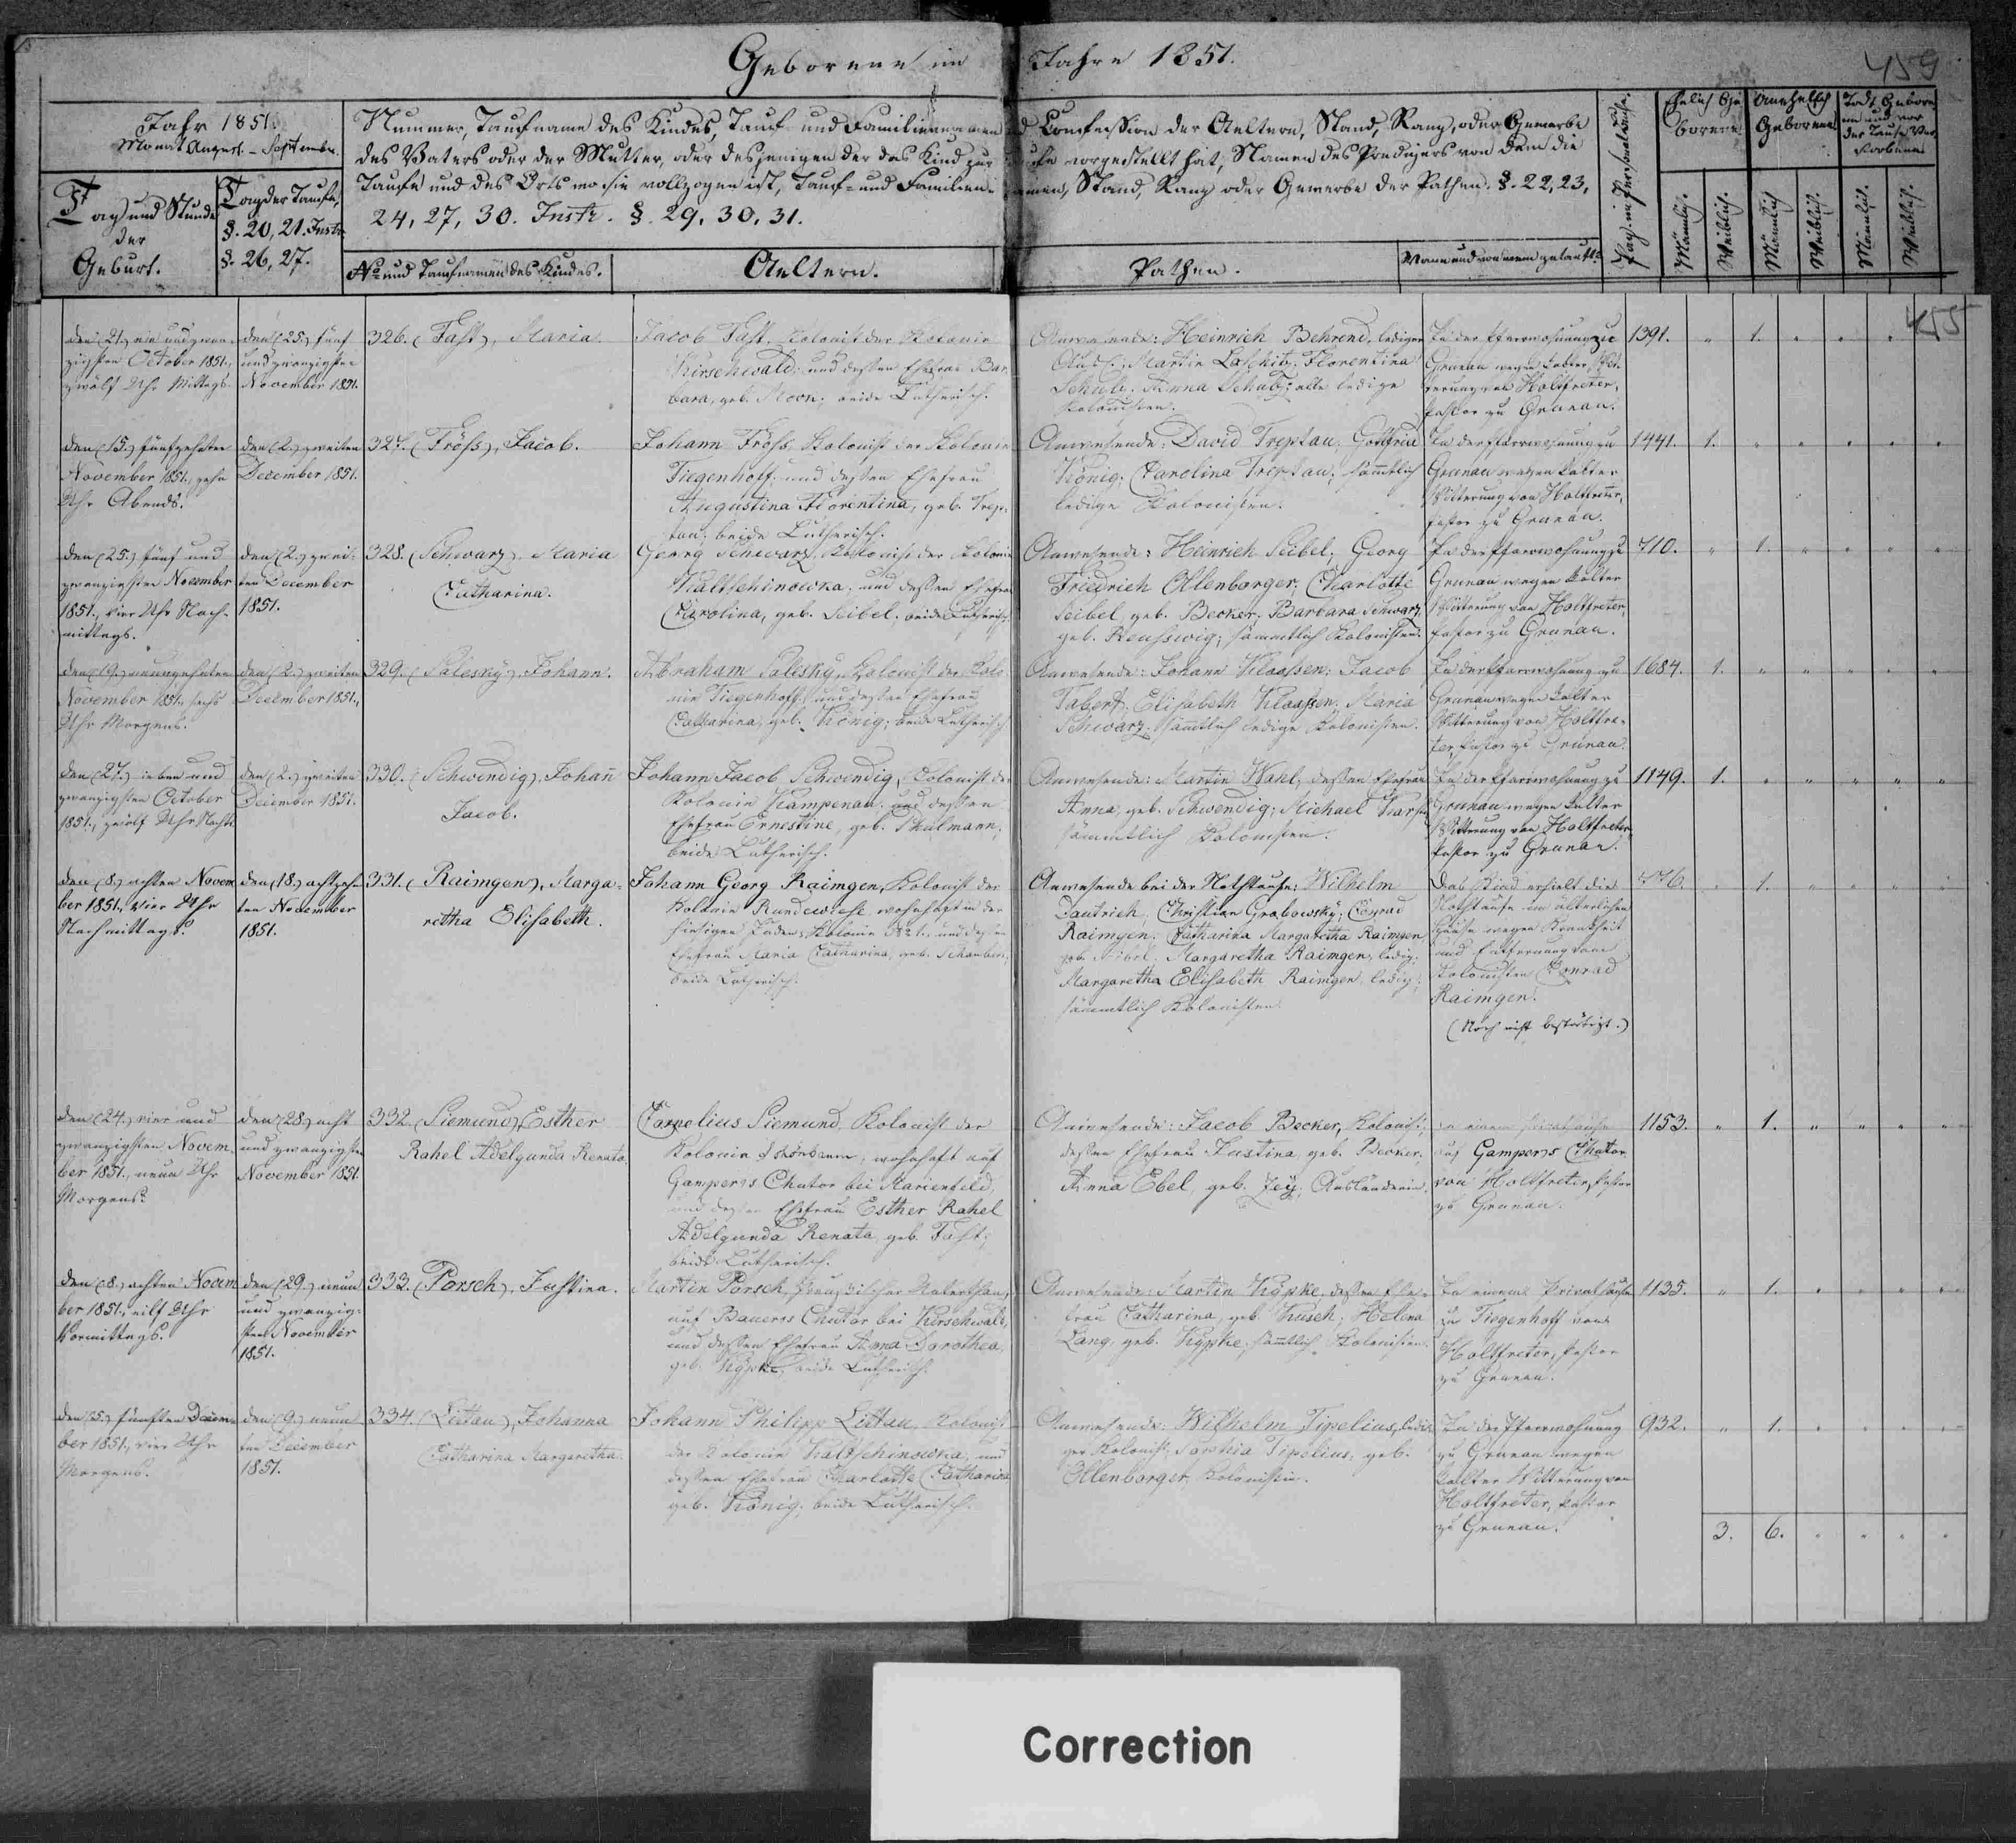 Geborene im Jahre 1851.
459
455
Jahr 1851.
Monat August - September.
Tag und Stunde
der
Geburt.
Tag der Taufe,
§. 20, 21. Instr.
§. 26, 27.
Nummer, Taufname des Kindes, Tauf- und Familiennamen und Confession der Aeltern, Stand, Rang, oder Gewerbe
des Vaters oder der Mutter, oder desjenigen der das Kind zur Taufe vorgestellt hat, Namen des Predigers von dem die
Taufe und des Orts wo sie vollzogen ist, Tauf- und Familiennamen, Stand, Rang oder Gewerbe der Pathen. §. 22, 23,
24, 27, 30. Instr. §. 29, 30, 31.
No und Taufnamen des Kindes.
Aeltern.
Pathen.
Wann und von wem getauft.
Pag. im Personalbuche.
Ehelich Geborene
Unehelich Geborene
Todt Geborene und vor der Taufe Verstorbene
Männlich.
Weiblich.
Männlich.
Weiblich.
Männlich.
Weiblich.
den (21.) ein und zwan-
zigsten October 1851.,
zwölf Uhr Mittags.
den (25.) fünf
und zwanzigsten
November 1851.
326. (Fast), Maria.
Jacob Fast, Kolonist der Kolonie
Kirschwald; und dessen Ehefrau Bar-
bara, geb. Moor; beide Lutherisch.
Anwesende: Heinrich Behrend, lediger
Ausl.; Martin Laschitz, Florentina
Schulz, Anna Schulz; alle ledige
Kolonisten.
In der Pfarrwohnung zu
Grunau wegen kalter Wit-
terung von Holtfreter,
Pastor zu Grunau.
1391. " 1. " " " "
den (15.) fünfzehnten
November 1851., zehn
Uhr Abends.
den (2.) zweiten
December 1851.
327. (Fröss), Jacob.
Johann Fröss, Kolonist der Kolonie
Tiegenhoff; und dessen Ehefrau
Augustina Florentina, geb. Trep-
tau; beide Lutherisch.
Anwesende: David Treptau; Gottfried
König; Carolina Treptau; sämmtlich
ledige Kolonisten.
In der Pfarrwohnung zu
Grunau wegen kalter
Witterung von Holtfreter,
Pastor zu Grunau.
1441. 1. " " " " "
den (25.) fünf und
zwanzigsten November
1851., vier Uhr Nach-
mittags.
den (2.) zwei-
ten December
1851.
328. (Schwarz), Maria
Catharina.
Georg Schwarz, Kolonist der Kolonie
Kaltschinowka; und dessen Ehefrau
Carolina, geb. Seibel; beide Lutherisch.
Anwesende: Heinrich Seibel; Georg
Friedrich Ollenborger; Charlotte
Seibel, geb. Becker; Barbara Schwarz,
geb. Reusswig; sämmtlich Kolonisten.
In der Pfarrwohnung zu
Grunau wegen kalter
Witterung von Holtfreter,
Pastor zu Grunau.
710. " 1. " " " "
den (19.) neunzehnten
November 1851., sechs
Uhr Morgens.
den (2.) zweiten
December 1851.
329. (Salesky), Johann.
Abraham Salesky, Kolonist der Kolo-
nie Tiegenhoff; und dessen Ehefrau
Catharina, geb. König; beide Lutherisch.
Anwesende: Johann Klaassen; Jacob
Tabert; Elisabeth Klaassen; Maria
Schwarz; sämmtlich ledige Kolonisten.
In der Pfarrwohnung zu
Grunau wegen kalter
Witterung von Holtfre-
ter, Pastor zu Grunau.
1684. 1. " " " " "
den (27.) sieben und
zwanzigsten October
1851., zwölf Uhr Nachts.
den (2.) zweiten
December 1851.
330. (Schwendig), Johann
Jacob.
Johann Jacob Schwendig, Kolonist der
Kolonie Kampenau; und dessen
Ehefrau Ernestine, geb. Thulmann;
beide Lutherisch.
Anwesende: Martin Wahl, dessen Ehefrau
Anna, geb. Schwendig; Michael
sämmtlich Kolonisten.
In der Pfarrwohnung zu
Grunau wegen kalter
Witterung von Holtfreter,
Pastor zu Grunau.
1149. 1. " " " " "
den (8.) achten Novem-
ber 1851., vier Uhr
Nachmittags.
den (18.) achtzehn-
ten November
1851.
331. (Raimgen), Marga-
retha Elisabeth.
Johann Georg Raimgen, Kolonist der
Kolonie Rundewiese, wohnhaft in der
hiesigen Juden Kolonie No 1., und dessen
Ehefrau Maria Catharina, geb.
beide Lutherisch.
Anwesende bei der Nothtaufe: Wilhelm
Dautrich; Christian Grabowsky; Conrad
Raimgen; Catharina Margaretha Raimgen,
geb. Margaretha Raimgen, ledig;
Margaretha Elisabeth Raimgen, ledig;
sämmtlich Kolonisten.
Das Kind erhielt die
Nothtaufe im älterlichen
Hause wegen Krankheit
und Entfernung vom
Kolonisten Conrad
Raimgen.
(Noch nicht bestätigt.)
776. " 1. " " " "
den (24.) vier und
zwanzigsten Novem-
ber 1851., neun Uhr
Morgens.
den (28.) acht
und zwanzigsten
November 1851.
332. (Siemund), Esther
Rahel Adelgunda Renata.
Cornelius Siemund, Kolonist der
Kolonie Schönbaum, wohnhaft auf
Gampers Chutor bei Marienfeld,
und dessen Ehefrau Esther Rahel
Adelgunda Renata, geb. Fast;
beide Lutherisch.
Anwesende: Jacob Becker, Kolonist,
dessen Ehefrau Justina, geb. Becker;
Anna Ebel, geb. Zey, Ausländerin.
In einem Privathause
auf Gampers Chutor
von Holtfreter, Pastor
zu Grunau.
1153. " 1. " " " "
den (8.) achten Novem-
ber 1851., eilf Uhr
Vormittags.
den (29.) neun
und zwanzig-
sten November
1851.
333. (Porsch), Justina.
Martin Porsch, Preussischer Unterthan,
auf Bauers Chutor bei Kirschwald,
und dessen Ehefrau Anna Dorothea,
geb. Kypke; beide Lutherisch.
Anwesende: Martin Kypke, dessen Ehe-
frau Catharina, geb. Kusch; Helena
Lang, geb. Kypke; sämmtlich Kolonisten.
In einem Privathause
zu Tiegenhoff von
Holtfreter, Pastor
zu Grunau.
1135. " 1. " " " "
den (5.) fünften Decem-
ber 1851., vier Uhr
Morgens.
den (9.) neun-
ten December
1851.
334. (Littau), Johanna
Catharina Margaretha.
Johann Philipp Littau, Kolonist
der Kolonie Kaltschinowka; und
dessen Ehefrau Charlotte Catharina,
geb. König; beide Lutherisch.
Anwesende: Wilhelm Tipelius, ledi-
ger Kolonist; Sophia Tipelius, geb.
Ollenborger, Kolonistin.
In der Pfarrwohnung
zu Grunau wegen
kalter Witterung von
Holtfreter, Pastor
zu Grunau.
932. " 1. " " " "
3. 6. " " " "
Correction